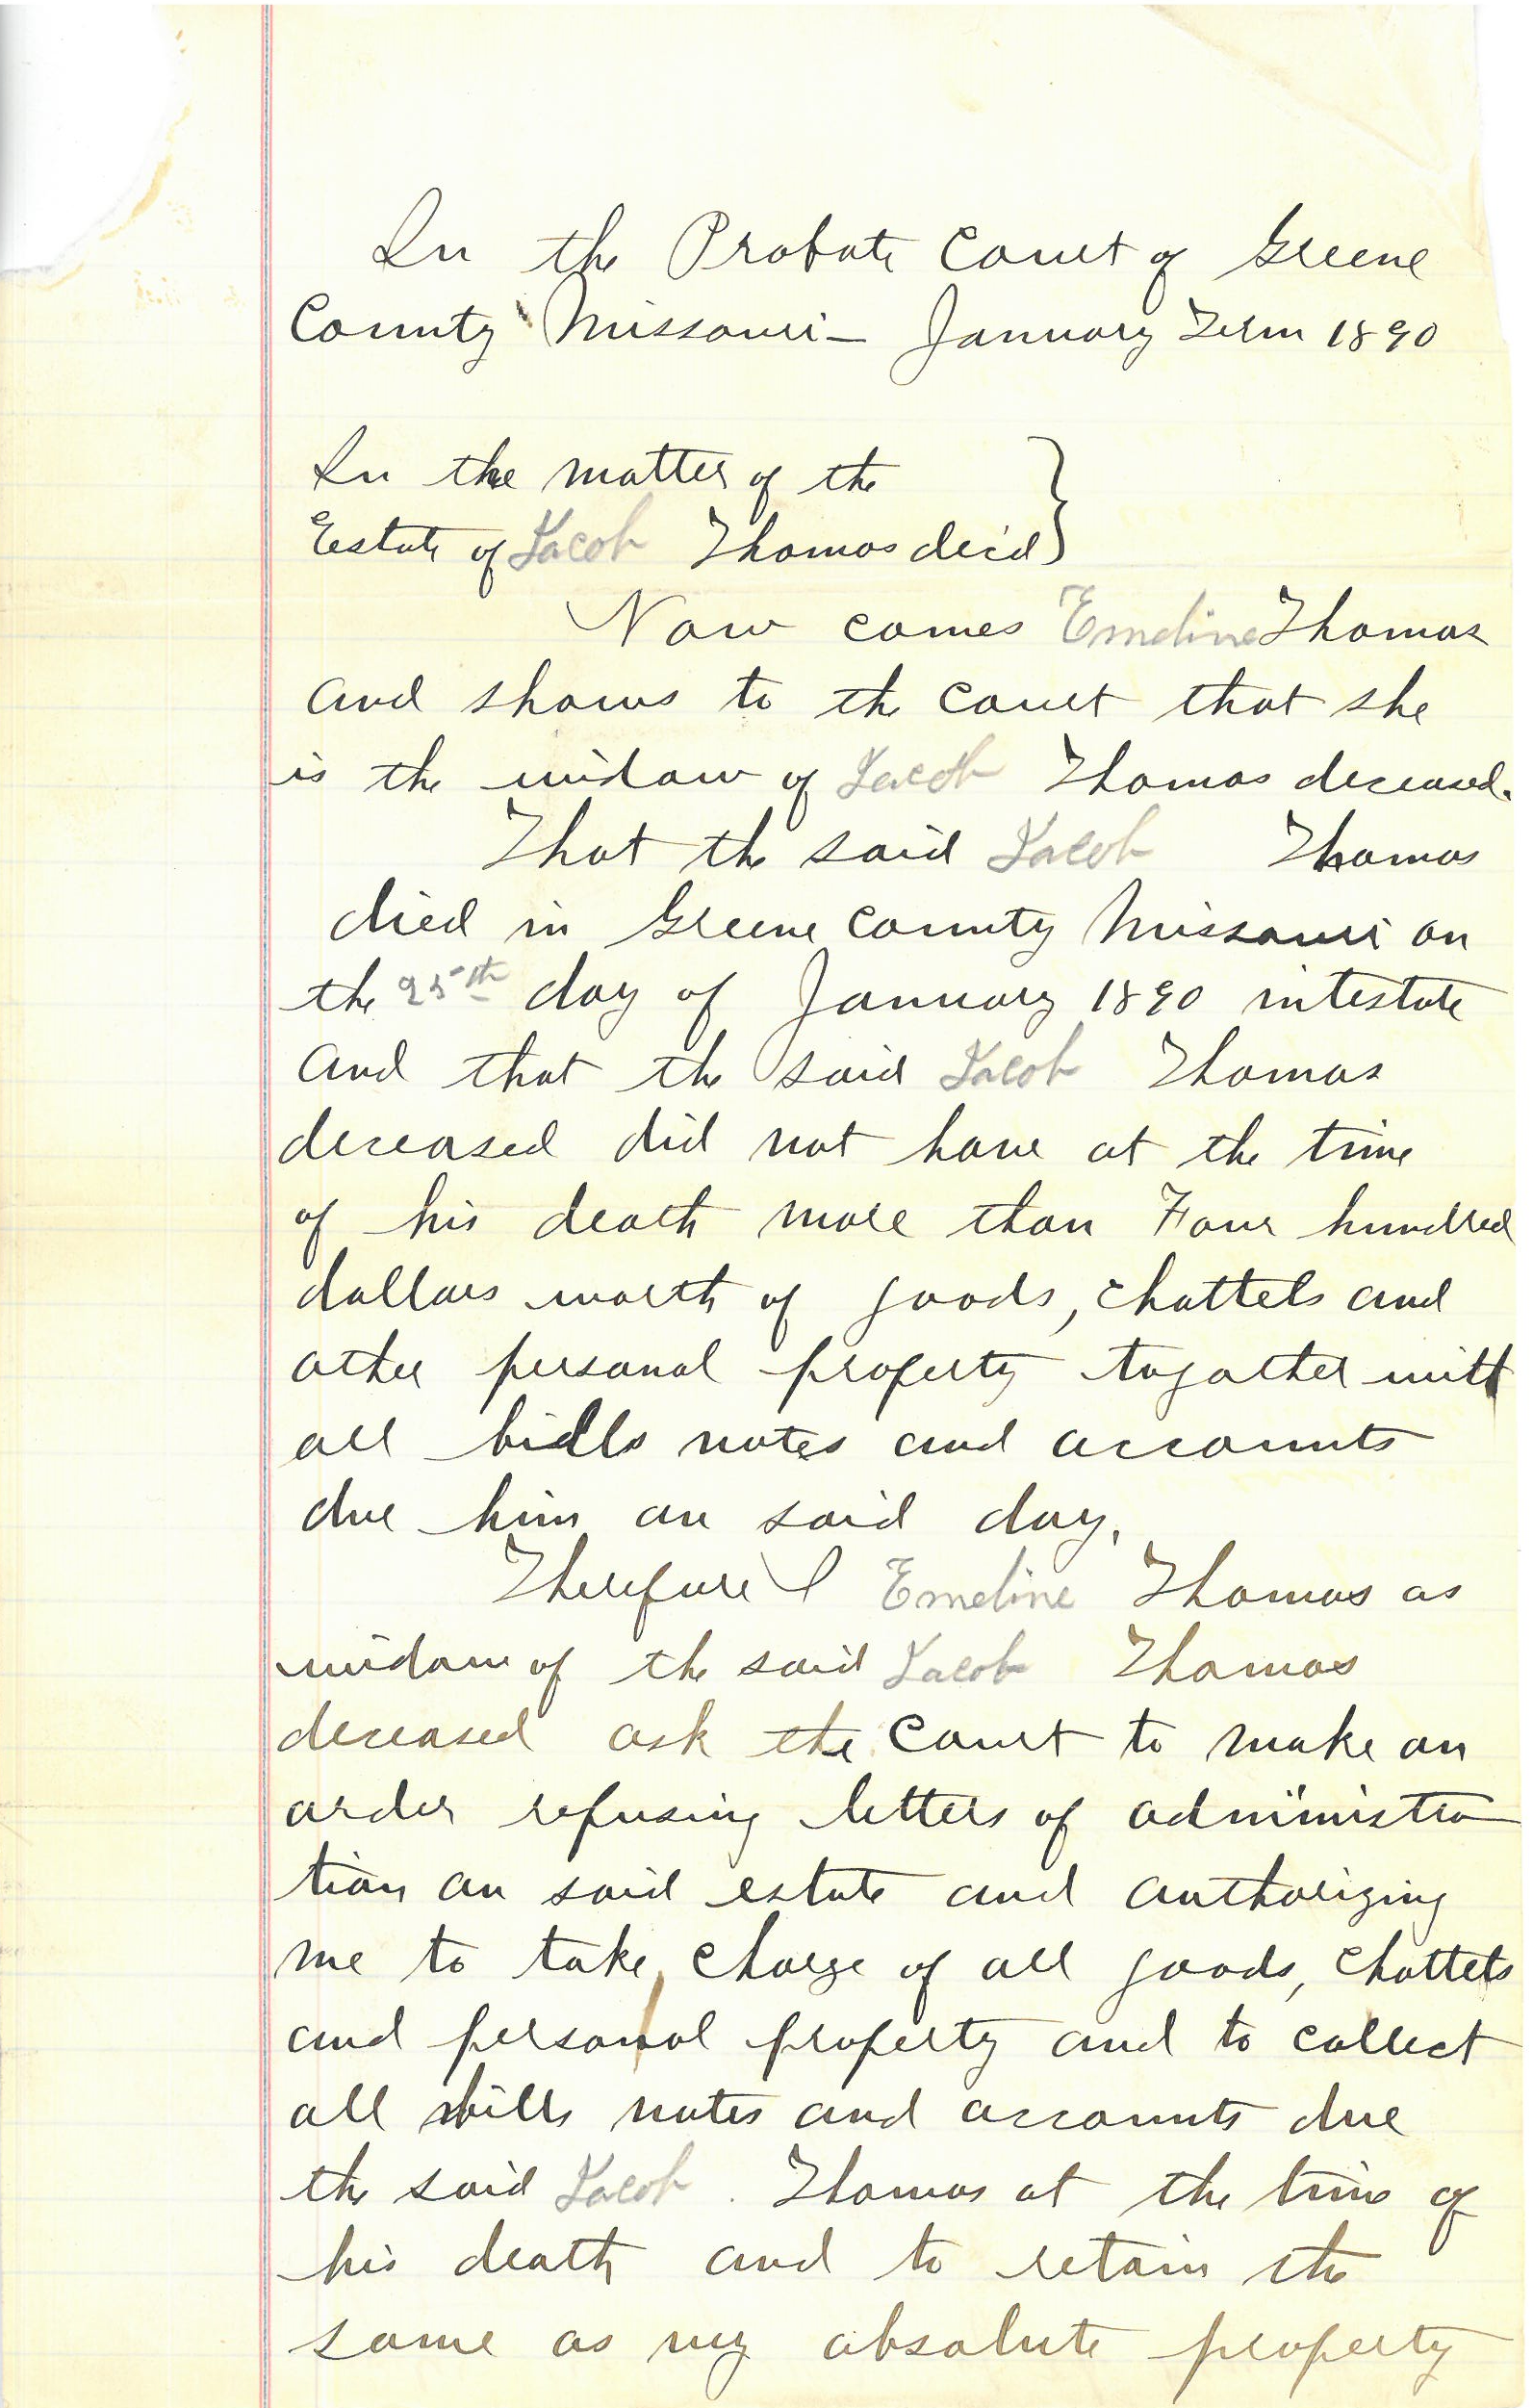 In the Probate Court of Greene
County Missouri — January Term 1890
In the matter of the
Estate of Jacob Thomas dec'd }
Now comes Emeline Thomas
and shows to the Court that she
is the widow of Jacob Thomas deceased.
That the said Jacob Thomas
died in Greene County Missouri on
the 25th day of January 1890 intestate
and that the said Jacob Thomas
deceased did not have at the time
of his death more than Four hundred
dollars worth of goods, chattels and
other personal property togather with
all bills notes and accounts
due him on said day,
Therefore I Emeline Thomas as
widow of the said Jacob Thomas
deceased ask the Court to make an
order refusing letters of administra
tion on said estate and authorizing
me to take charge of all goods, chattels
and personal property and to collect
all bills notes and accounts due
the said Jacob Thomas at the time of
his death and to retain the
same as my absolute property